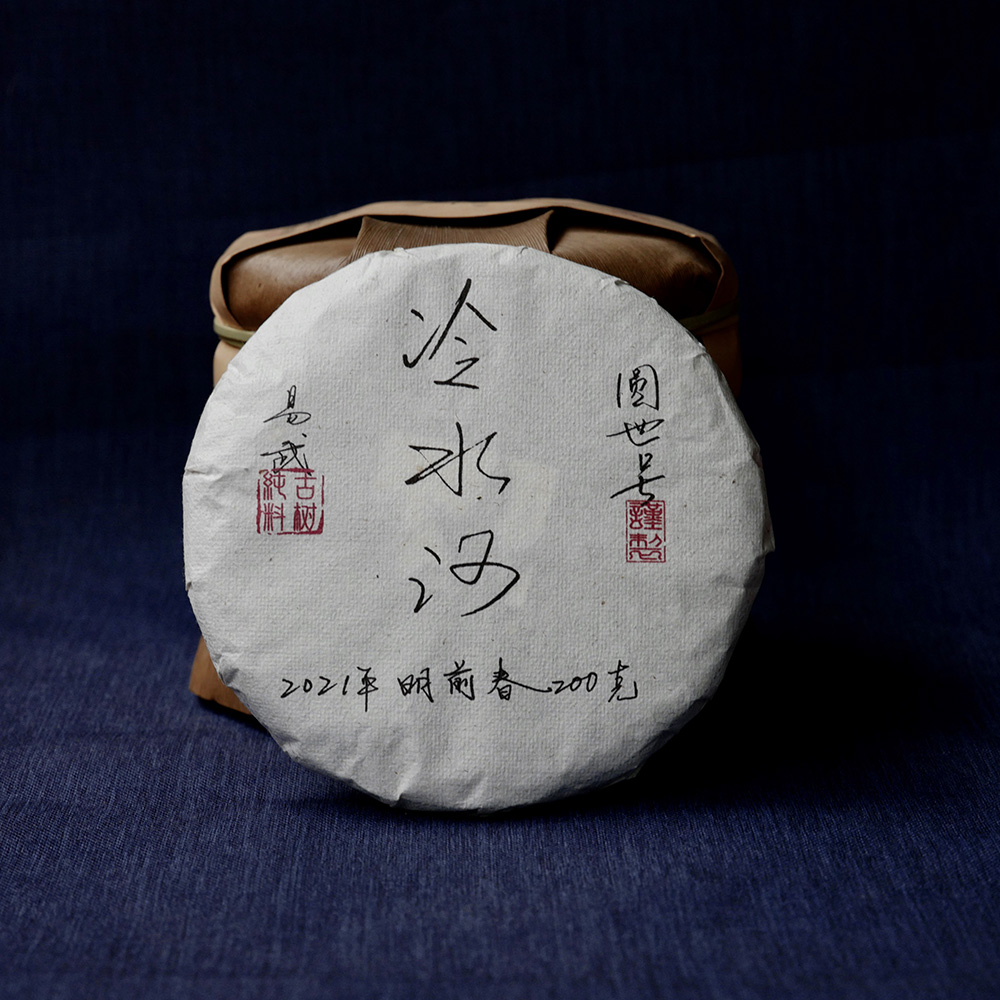 冷水河
圆世号
謹製
易武
古树
純料
2021年 明前春200克